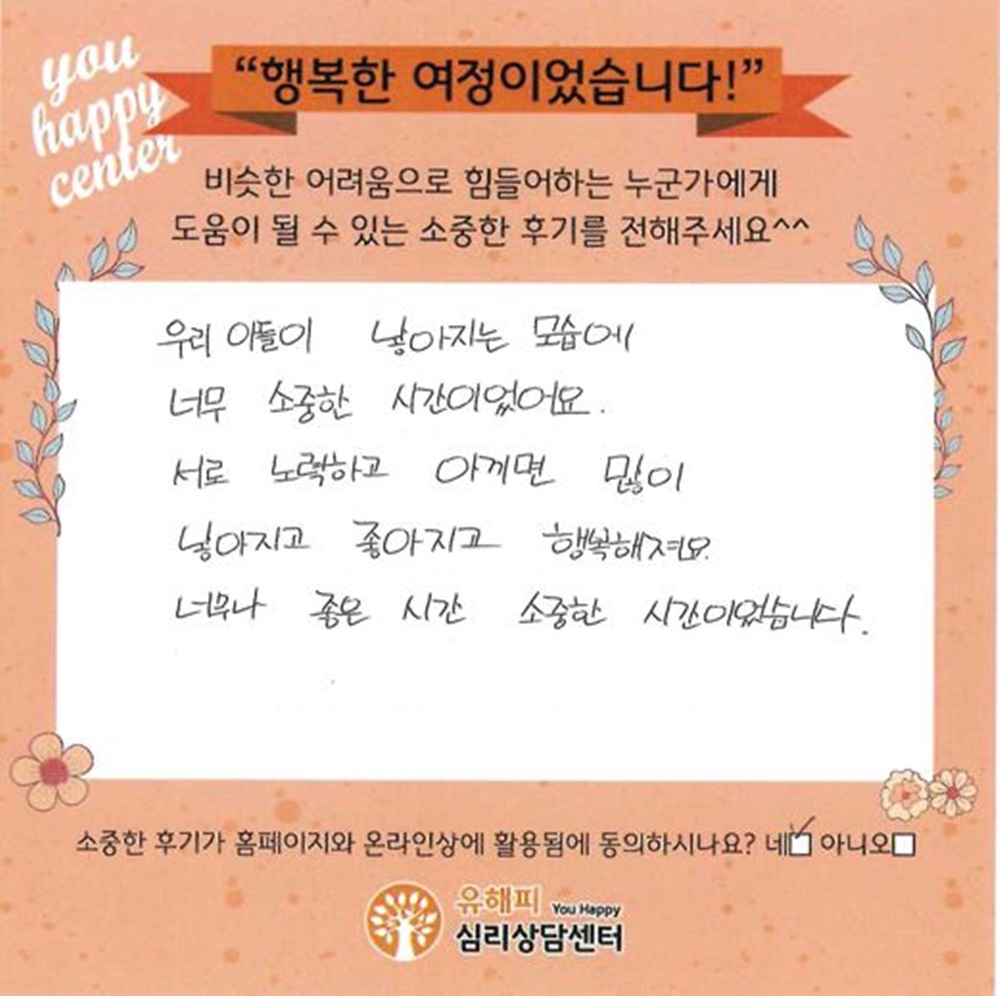 you
happy
center
“행복한 여정이었습니다!”
비슷한 어려움으로 힘들어하는 누군가에게
도움이 될 수 있는 소중한 후기를 전해주세요^^
우리 아들이 낳아지는 모습에
너무 소중한 시간이었어요.
서로 노력하고 아끼면 많이
낳아지고 좋아지고 행복해져요.
너무나 좋은 시간 소중한 시간이었습니다.
소중한 후기가 홈페이지와 온라인상에 활용됨에 동의하시나요? 네 아니오
유해피 You Happy
심리상담센터